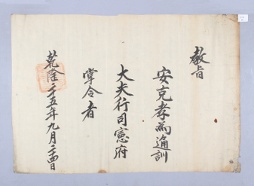 教旨
安克孝為通訓
大夫行司憲府
掌令者
乾隆三十五年九月二十四日